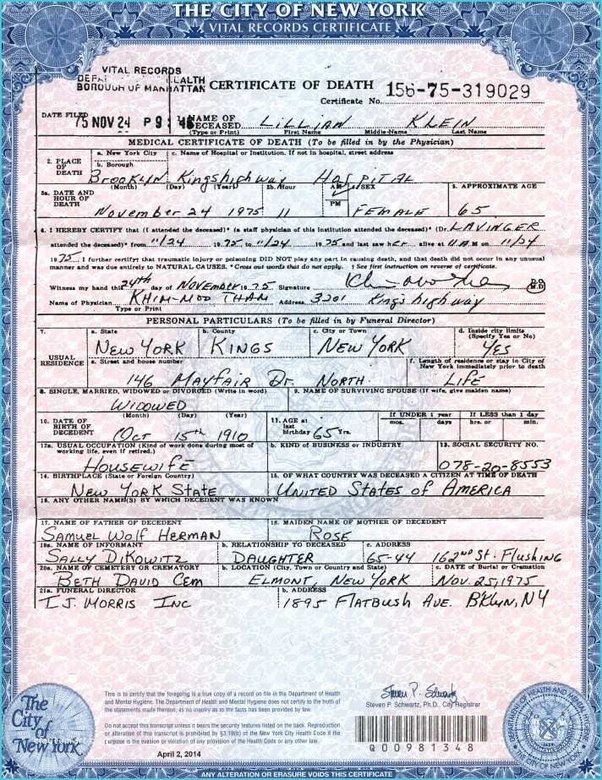 THE CITY OF NEW YORK
VITAL RECORDS CERTIFICATE
VITAL RECORDS
BOROUGH OF MANHATTAN
CERTIFICATE OF DEATH
156-75-319029
Certificate No.
DATE FILED
75 NOV 24 P 9
1. NAME OF DECEASED LILLIAN KLEIN
(Type or Print) First Name Middle Name Last Name
MEDICAL CERTIFICATE OF DEATH (To be filled in by the Physician)
2. PLACE OF DEATH
a. New York City
b. Borough
Brooklyn
c. Name of Hospital or Institution. If not in hospital, street address
Kingshighway Hospital
3a. DATE AND HOUR OF DEATH
(Month) (Day) (Year)
November 24 1975
3b. Hour
11
AM
PM
4. SEX
FEMALE
5. APPROXIMATE AGE
65
I HEREBY CERTIFY that (I attended the deceased)* (a staff physician of this institution attended the deceased)* (Dr. LAVINGER
attended the deceased)* from 11/24 1975 to 11/24 1975 and last saw her alive at 11 AM on 11/24
1975. I further certify that traumatic injury or poisoning DID NOT play any part in causing death, and that death did not occur in any unusual
manner and was due entirely to NATURAL CAUSES. * Cross out words that do not apply. † See first instruction on reverse of certificate.
Witness my hand this 24th day of NOVEMBER 1975 Signature
Name of Physician KHIM-MOO THAM Address 3201 Kings highway
Type or Print
PERSONAL PARTICULARS (To be filled in by Funeral Director)
7. USUAL RESIDENCE
a. State
NEW YORK
b. County
KINGS
c. City or Town
NEW YORK
d. Inside city limits (Specify Yes or No)
YES
e. Street and house number
146 Mayfair Dr. North
f. Length of residence or stay in City of New York immediately prior to death
LIFE
8. SINGLE, MARRIED, WIDOWED or DIVORCED (Write in word)
WIDOWED
9. NAME OF SURVIVING SPOUSE (If wife, give maiden name)
10. DATE OF BIRTH OF DECEDENT
(Month) (Day) (Year)
Oct 15th 1910
11. AGE at last birthday 65 Yrs.
If UNDER 1 year
mos. days
If LESS than 1 day
hrs. or min.
12a. USUAL OCCUPATION (Kind of work done during most of working life, even if retired.)
HOUSEWIFE
b. KIND OF BUSINESS or INDUSTRY
13. SOCIAL SECURITY NO.
078-20-8553
14. BIRTHPLACE (State or Foreign Country)
New York State
15. OF WHAT COUNTRY WAS DECEASED A CITIZEN AT TIME OF DEATH
United States of America
16. ANY OTHER NAME(S) BY WHICH DECEDENT WAS KNOWN
17. NAME OF FATHER OF DECEDENT
Samuel Wolf Herman
18. MAIDEN NAME OF MOTHER OF DECEDENT
ROSE
19a. NAME OF INFORMANT
SALLY DIKOWITZ
b. RELATIONSHIP TO DECEASED
DAUGHTER
c. ADDRESS
65-44 162nd St. Flushing
20a. NAME OF CEMETERY OR CREMATORY
BETH DAVID CEM
b. LOCATION (City, Town or Country and State)
ELMONT, NEW YORK
c. DATE of Burial or Cremation
NOV. 25, 1975
21a. FUNERAL DIRECTOR
I.J. MORRIS INC
b. ADDRESS
1895 FLATBUSH AVE. B'KLYN, NY
The City of New York
This is to certify that the foregoing is a true copy of a record on file in the Department of Health
and Mental Hygiene. The Department of Health and Mental Hygiene does not certify to the truth of
the statements made thereon, as no inquiry as to the facts has been provided by law.
Do not accept this transcript unless it bears the security features listed on the back. Reproduction
or alteration of this transcript is prohibited by §3.19(b) of the New York City Health Code if
the purpose is the evasion or violation of any provision of the Health Code or any other law.
April 2, 2014
Steven P. Schwartz
Steven P. Schwartz, Ph.D. City Registrar
Q00981348
ANY ALTERATION OR ERASURE VOIDS THIS CERTIFICATE